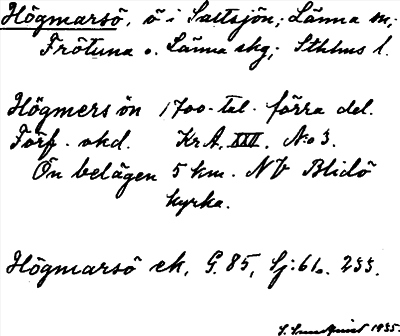 Högmarsö, ö i Saltsjön; Länna sn;
Frötuna o. Länna skg; Sthlms l.
Högmersön 1700-tal. förra del.
Förf. okd. Kr.A. XXII. N:o 3.
Ön belägen 5 km. NV Blidö
kyrka.
Högmarsö ek, G. 85, Sj:61. 255.
S. Sundqvist 1935.